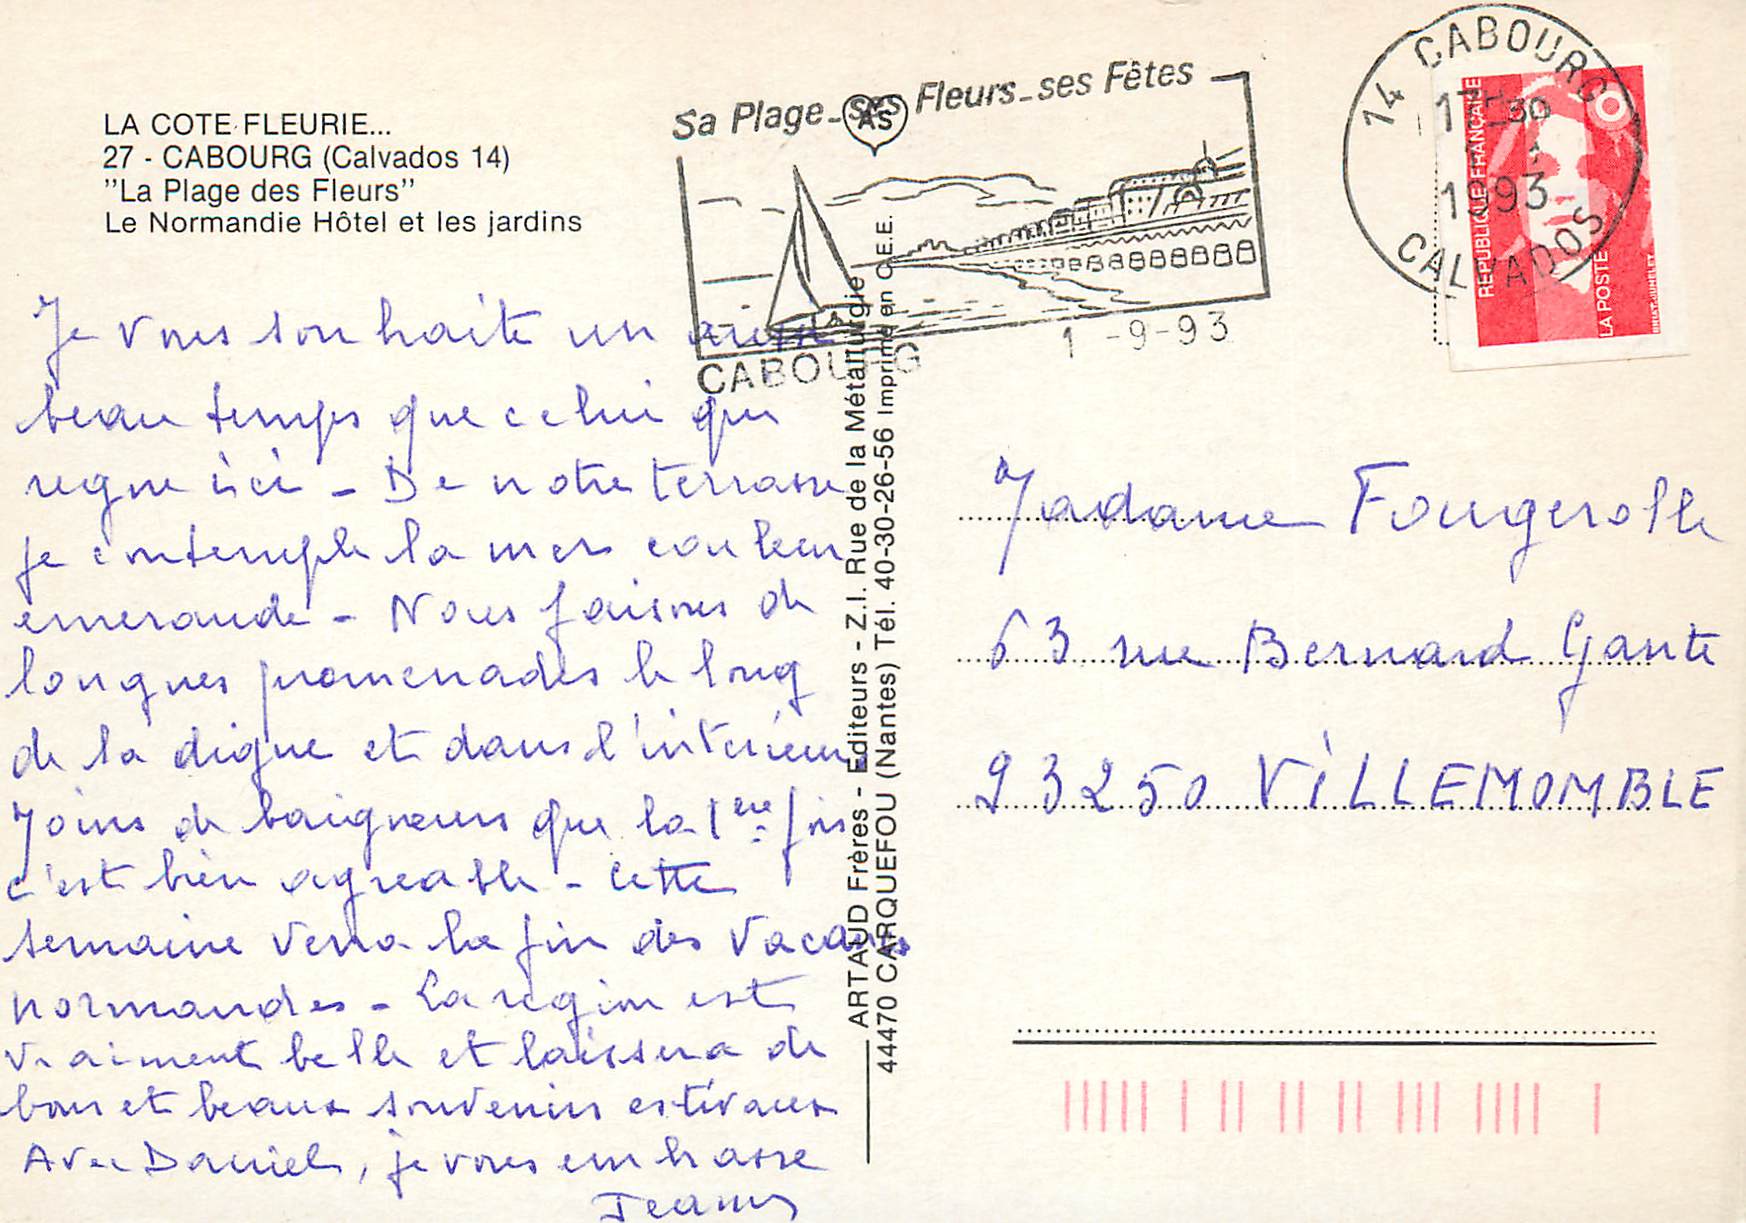 LA COTE FLEURIE...
27 - CABOURG (Calvados 14)
"La Plage des Fleurs"
Le Normandie Hôtel et les jardins
Sa Plage_ses Fleurs_ses Fêtes
AS
CABOURG
1 -9-93
14 CABOURG
17H30
1993
CALVADOS
REPUBLIQUE FRANÇAISE
LA POSTE
BRIAT-JUMELET
Je vous souhaite un aussi
beau temps que celui qui
regne ici - De notre terrasse
je contemple la mer couleur
emeraude - Nous faisons de
longues promenades le long
de la digue et dans l'interieur
Moins de baigneurs que la 1ere fois
c'est bien agreable - Cette
semaine verra la fin des vacances
normandes - La region est
vraiment belle et laissera de
bons et beaux souvenirs estivaux
Avec Daniel, je vous embrasse
ARTAUD Frères - Editeurs - Z.I. Rue de la Métallurgie
44470 CARQUEFOU (Nantes) Tél. 40-30-26-56 Imprimé en C.E.E.
Madame Fougerolle
63 rue Bernard Gante
93250 VILLEMOMBLE